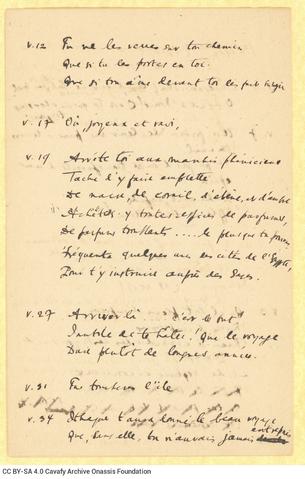 v.12 Tu ne les verras sur ton chemin
Que si tu les portes en toi.
Que si ton âme devant toi les fait surgir
v.17 Où, joyeux et ravi,
v.19 Arrête toi aux marchés phéniciens
Tache d'y faire emplette
De nacre, de corail, d'ébène, et d'ambre
Achètes y toutes espèces de parfums,
De parfums troublants .... le plus que tu pourras
Fréquente quelques unes des cités de l'Egypte,
Pour t'y instruire auprès des Sages.
v.27 Arriver là c'est le but
Inutile de te hâter! que le voyage
Dure plutôt de longues années.
v.31 Tu toucheras l'île
v.34 Ithaque t'aura donné le beau voyage
entrepris
Que, sans elle, tu n'aurais jamais
CC BY-SA 4.0 Cavafy Archive Onassis Foundation